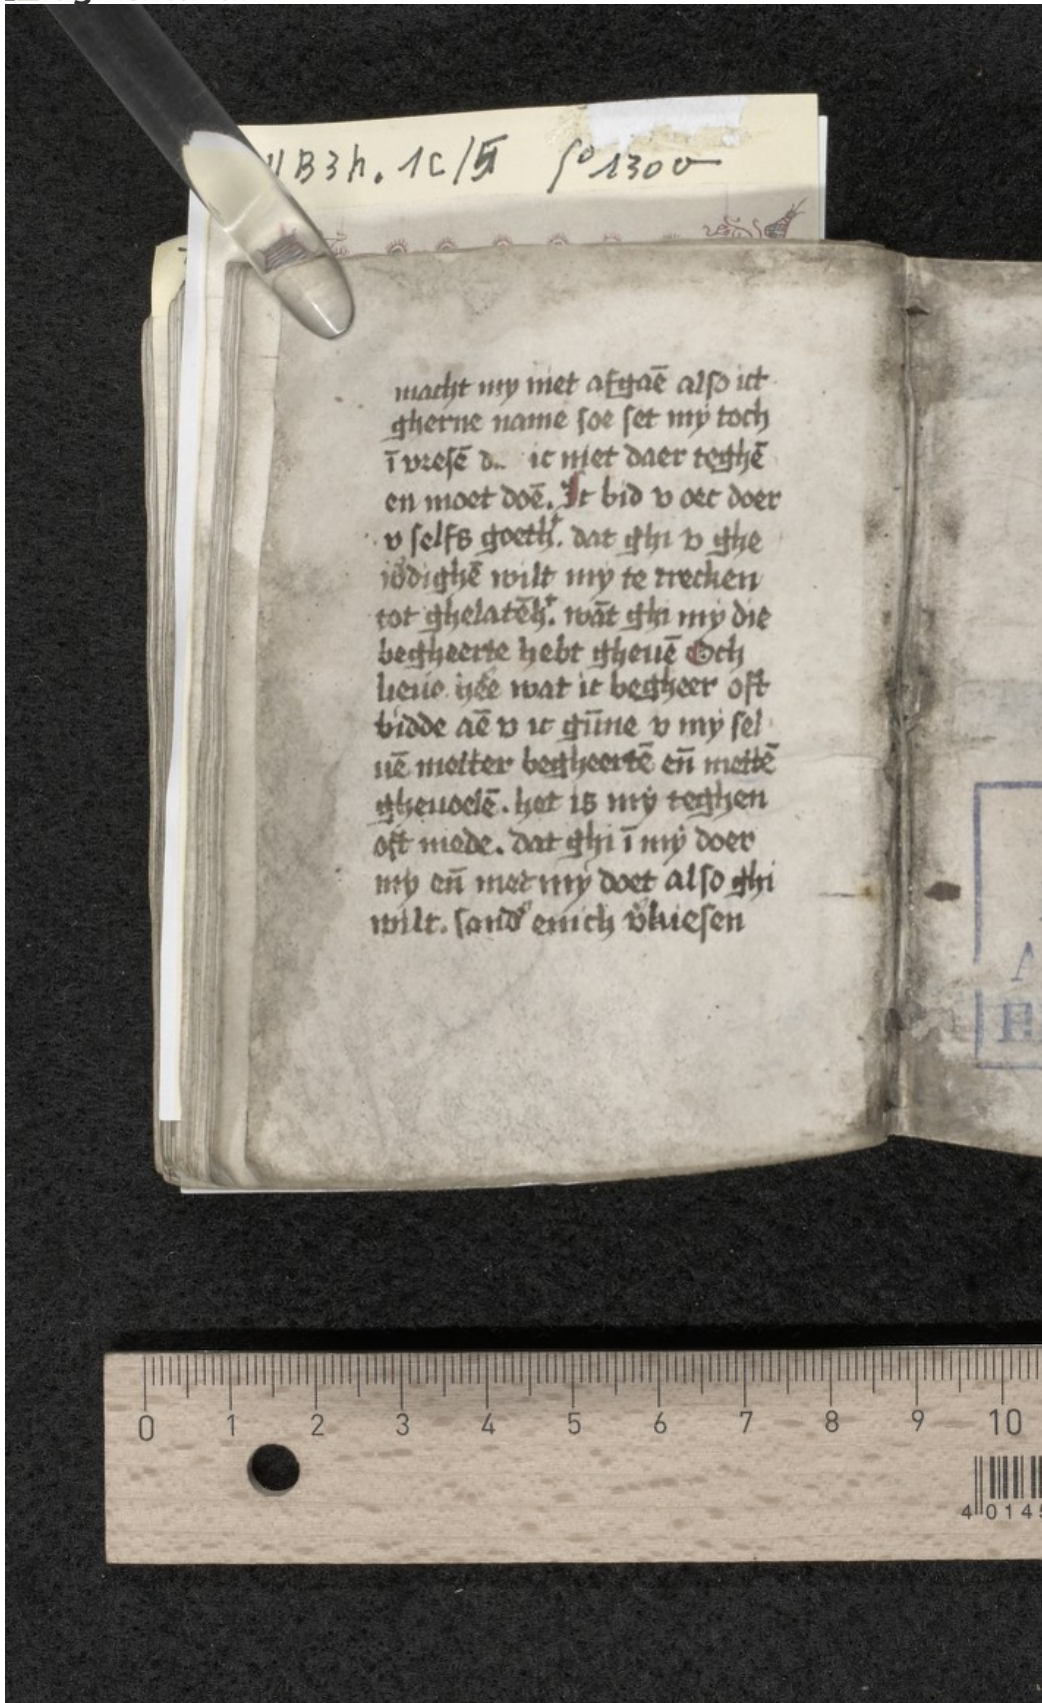 HB3h. 1C/5 fo 130v
macht my niet afgaē also ict
gherne name soe set mÿ toch
ī vresē d.. ic niet daer teghē
en moet doē. Ic bid v oec doer
v selfs goeth. dat ghi v ghe
wilt my te trecken
tot ghelatēh. wāt ghi my die
begheerte hebt gheuē Och
lieue wat ic begheer oft
bidde aē v ic gūne v my sel
uē metter begheertē en̄ mettē
gheuoelē. het is mÿ teghen
oft mede. dat ghi ī mÿ doer
my en̄ met my doet also ghi
wilt. sond' enich v'kiesen
0 1 2 3 4 5 6 7 8 9 10
4 0145